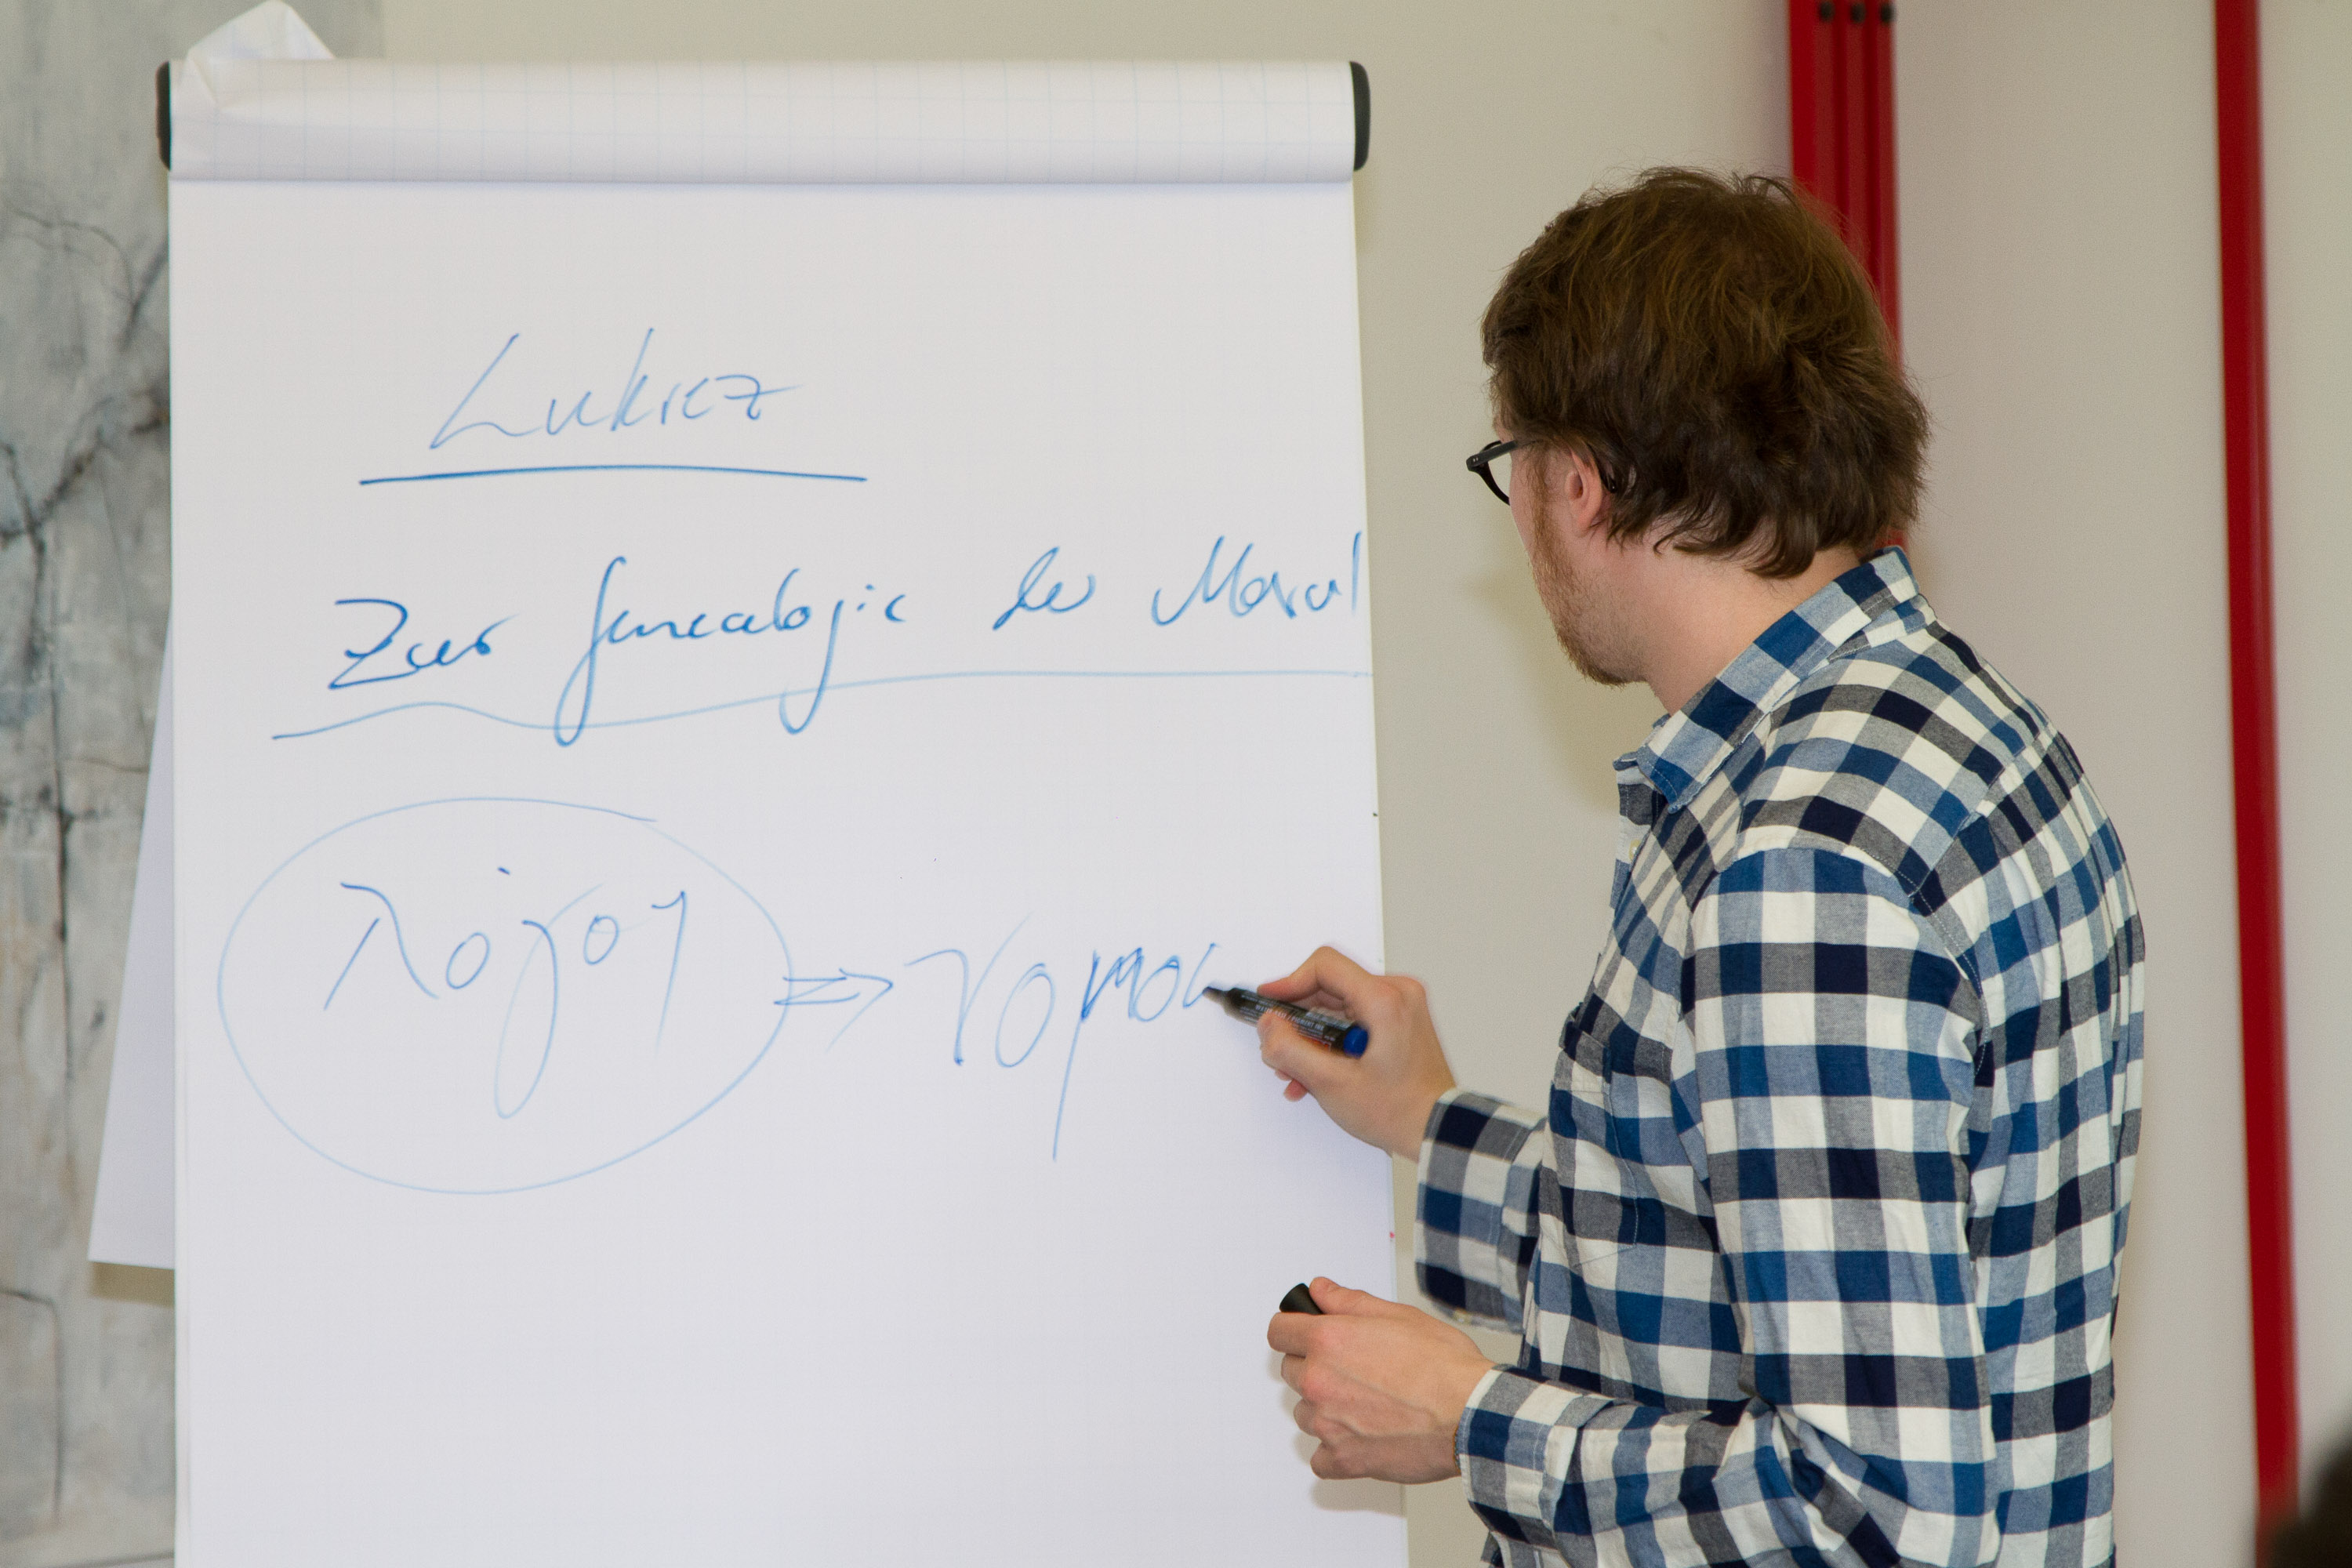 Lukrez
Zur Genealogie der Moral
λόγος ⇒ νομος